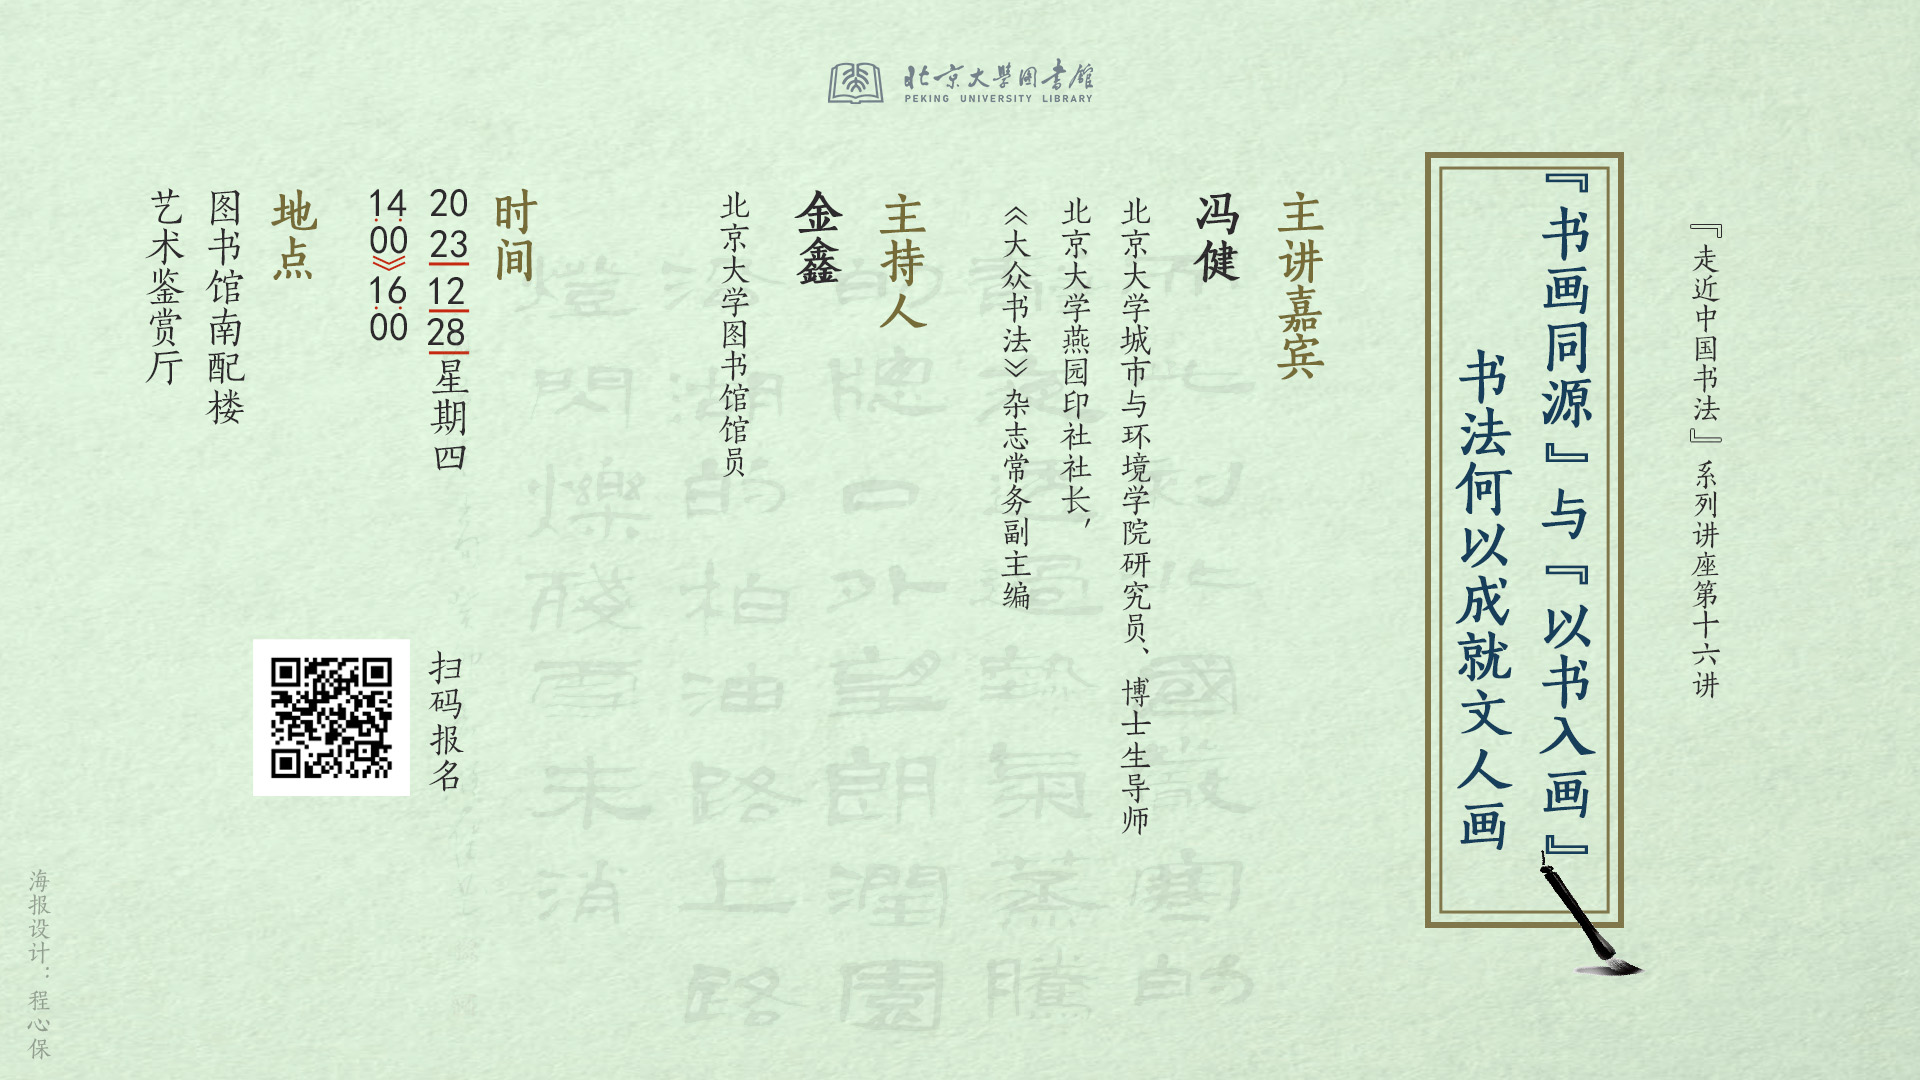 北京大學圖書館
PEKING UNIVERSITY LIBRARY
『走近中国书法』系列讲座第十六讲
『书画同源』与『以书入画』
书法何以成就文人画
主讲嘉宾
冯健
北京大学城市与环境学院研究员、博士生导师
北京大学燕园印社社长，
《大众书法》杂志常务副主编
主持人
金鑫
北京大学图书馆馆员
时间
2023 12 28 星期四
14:00》16:00
地点
图书馆南配楼
艺术鉴赏厅
扫码报名
海报设计：程心保